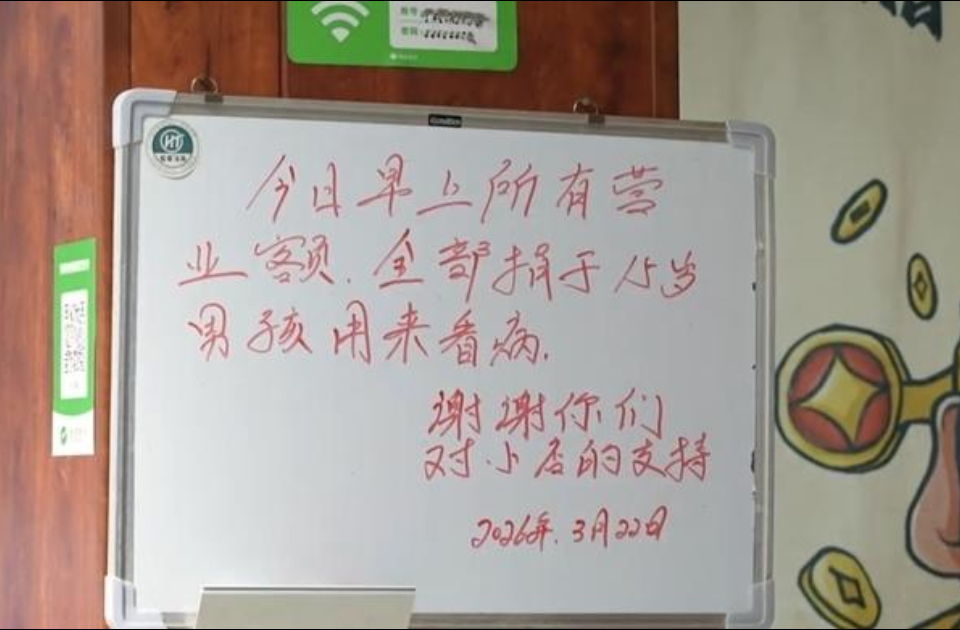 账号
密码
今日早上所有营
业客页.全部捐于15岁
男孩用来看病.
谢谢你们
对小店的支持
2026年.3月22日